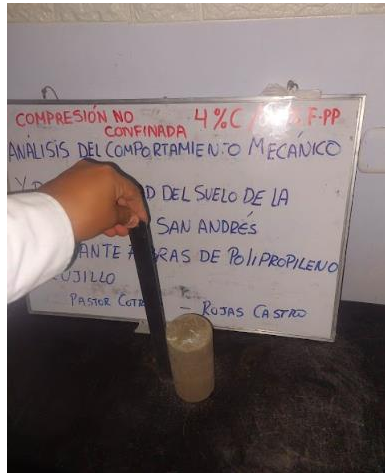 COMPRESIÓN NO 4 %C F-PP
CONFINADA
ANÁLISIS DEL COMPORTAMIENTO MECÁNICO
Y D DEL SUELO DE LA
SAN ANDRÉS
ANTE BRAS DE POLIPROPILENO
UJILLO
PASTOR COT - ROJAS CASTRO